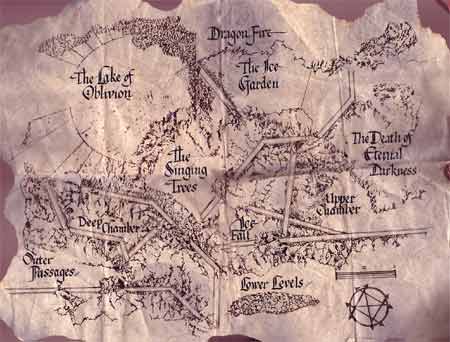 Dragon Fire
The Lake of
Oblivion
The Ice
Garden
The Death of
Eternal
Darkness
The
Singing
Trees
Upper
Chamber
Deep Chamber
Ice
Fall
Outer
Passages
Lower Levels